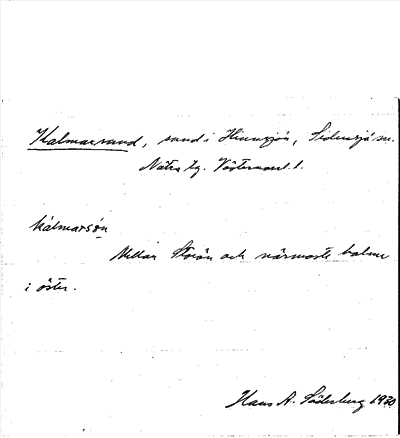 Kalmarsund, sund i Hinnsjön, Sidensjö sn.
Nätra tg. Västernorrl. l.
kálmarsó̀n
Mellan Storön och närmaste holme
i öster.
Hans A. Söderberg 1930